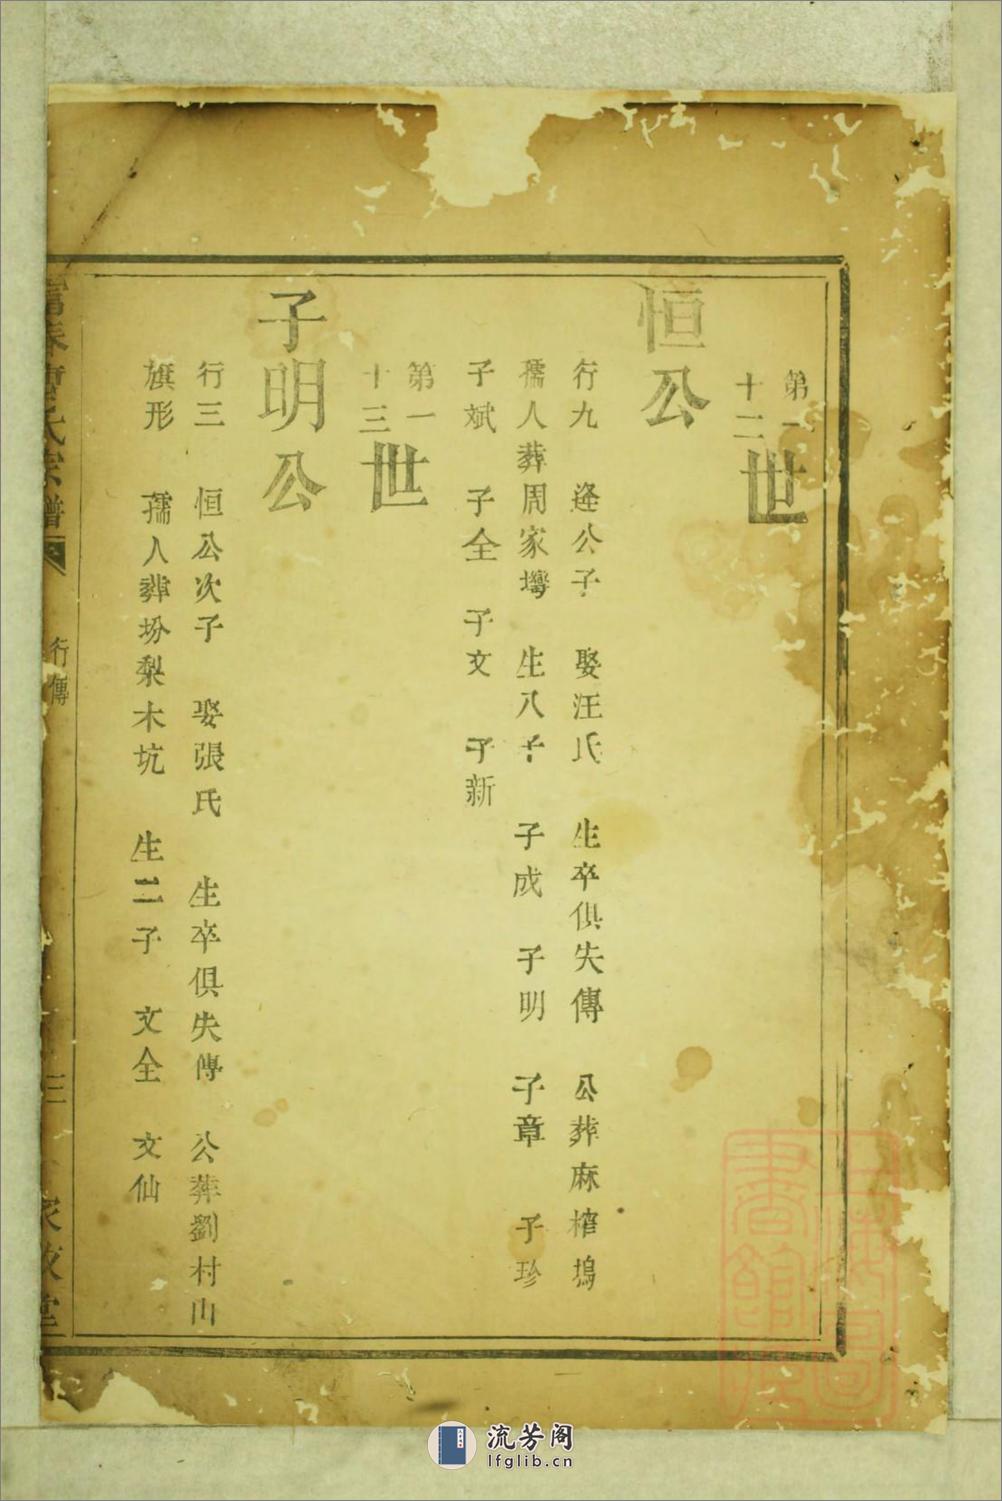 第一十二世
恒公
行九 逄公子 娶汪氏 生卒俱失傳 公葬麻榨塢
孺人葬周家塆 生八子 子成 子明 子章 子珍
子斌 子全 子文 子新
第一十三世
子明公
行三 恒公次子 娶張氏 生卒俱失傳 公葬劉村山
旗形 孺人葬坋梨木坑 生二子 文全 文仙
氏宗譜
行傳
三
堂
上海圖書館藏
流芳阁
lfglib.cn